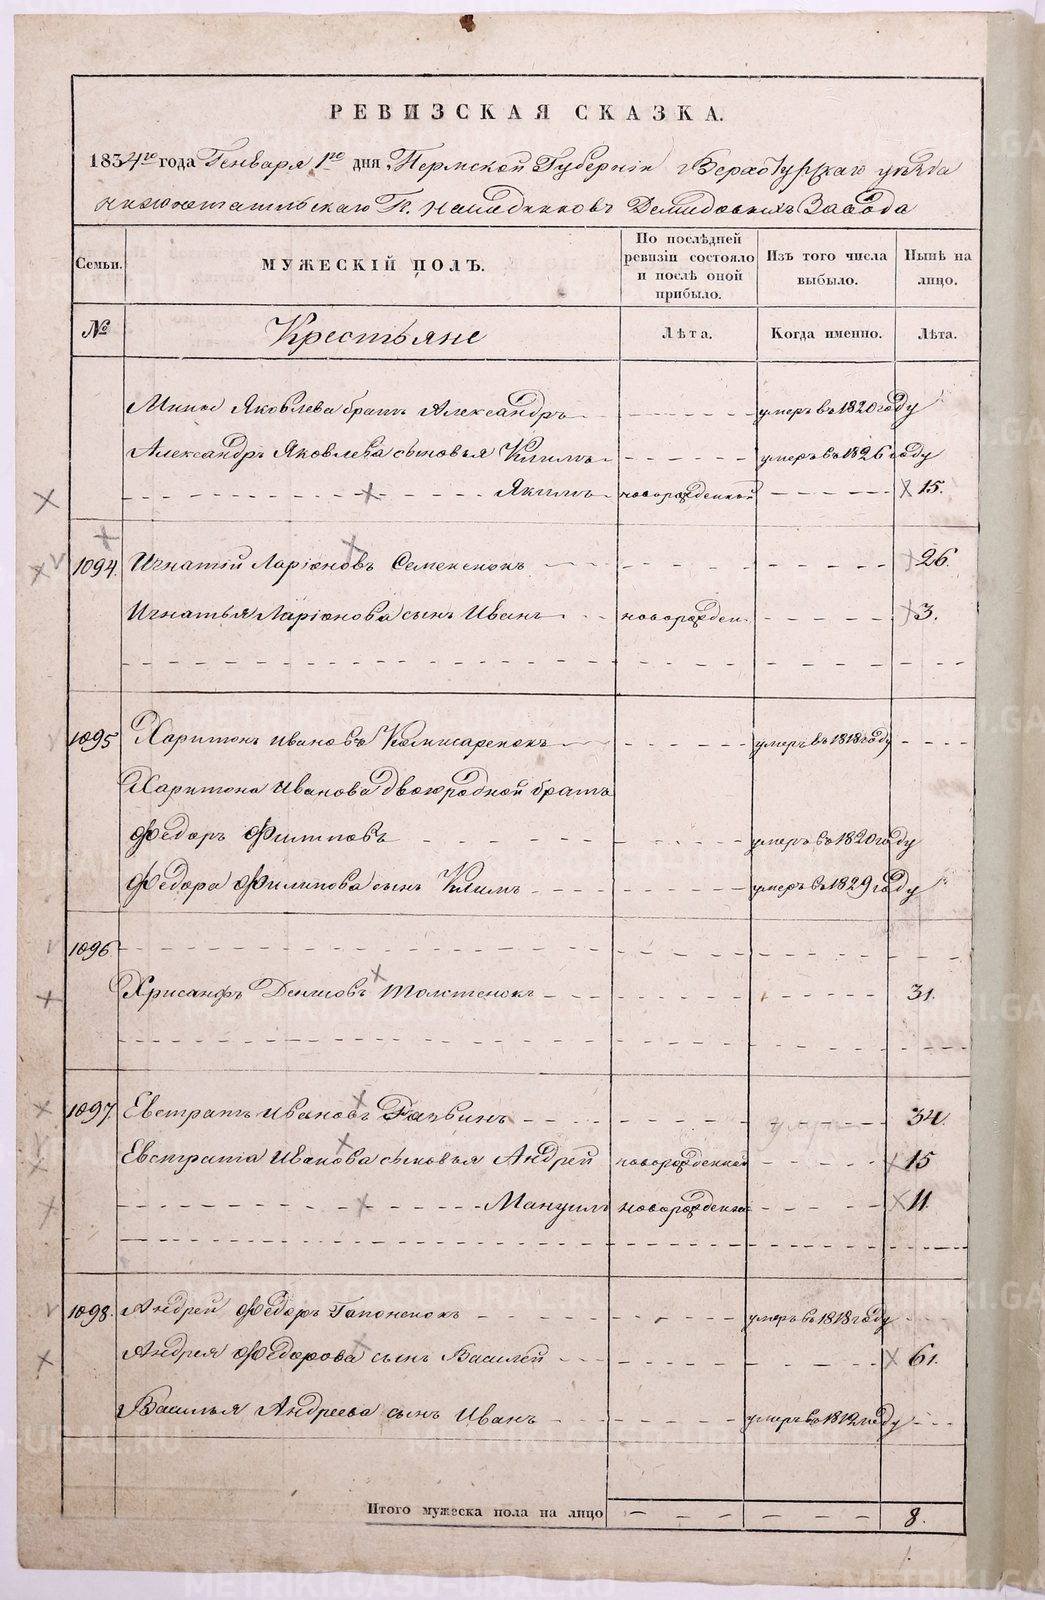 РЕВИЗСКАЯ СКАЗКА.
1834го года Генваря 1го дня, Пермской Губерніи Верхотурскаго уѣзда
нижнотагильскаго Г. наслѣдниковъ Демидовыхъ Завода
Семьи.
МУЖЕСКІЙ ПОЛЪ.
По послѣдней ревизіи состояло и послѣ оной прибыло.
Изъ того числа выбыло.
Нынѣ на лицо.
№
Крестьяне
Лѣта.
Когда именно.
Лѣта.
Яковлева братъ Александръ умеръ въ 1820 году
Александръ Яковлева сыновья Климъ умеръ въ 1826 году
Якимъ новорожденной 15.
1094. Игнатій Ларіоновъ Семененокъ 26.
Игнатья Ларіонова сынъ Иванъ новорожден 3.
1095 Харитонъ Ивановъ Комисаренокъ умеръ въ 1818 году
Харитона Иванова двоюродной братъ
Федоръ Филиповъ умеръ въ 1820 году
Федора Филипова сынъ Климъ умеръ въ 1829 году
1096.
Хрисанфъ Денисовъ Толстенокъ 31.
1097. Евстратъ Ивановъ 34.
Евстрата Иванова сыновья Андрей новорожденной 15
Мануилъ новорожденной 11.
1098. Андрей Федоръ Гапоненокъ умеръ въ 1818 году
Андрея Федорова сынъ Василей 61.
Василья Андреева сынъ Иванъ умеръ въ 1812 году
Итого мужеска пола на лицо 8.
METRIKI.GASO-URAL.RU